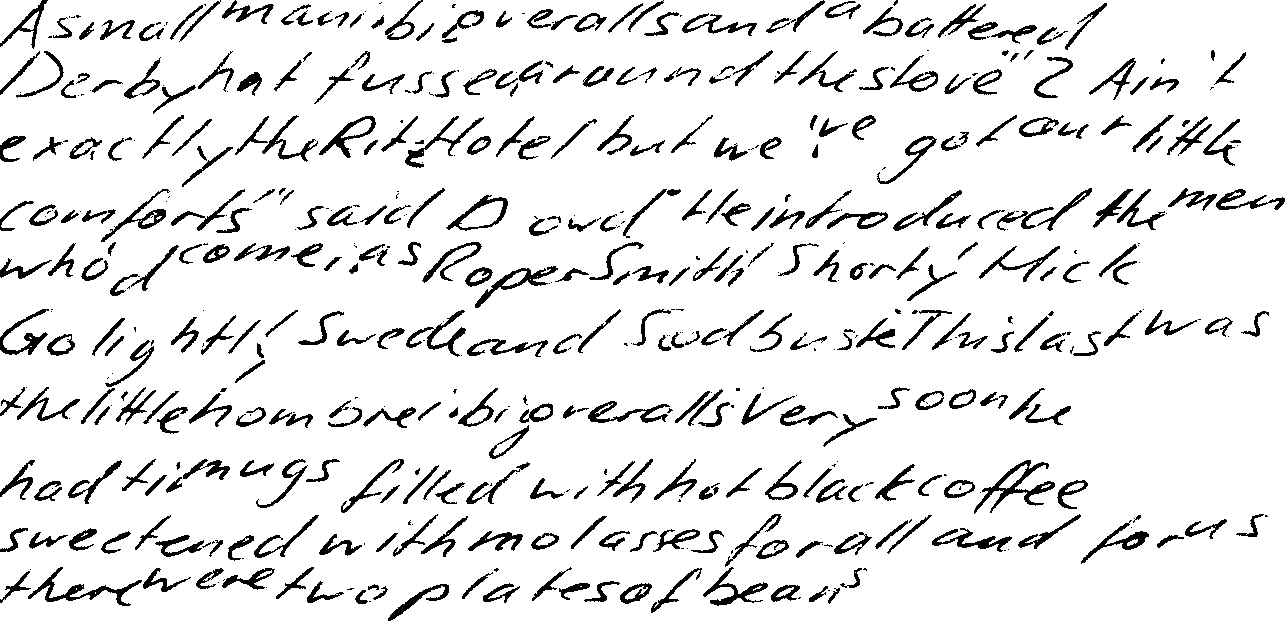 A small man in big overalls and a battered
Derby hat fussed around the stove "" 2 Ain't
exactly the Ritz Hotel but we've got our little
comforts" said Dowd "He introduced the men
who'd come in as Roper Smith' Shorty' Mick
Golightly' Swede and Sodbuster This last was
the little hombre in big overalls Very soon he
had tin mugs filled with hot black coffee
sweetened with molasses for all and for us
there were two plates of beans